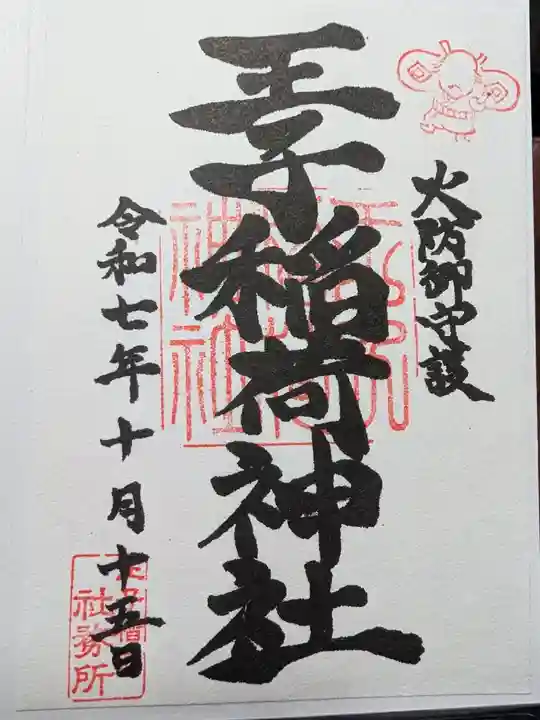 火防御守護
王子稲荷神社
令和七年十月十五日
王子稲荷
社務所